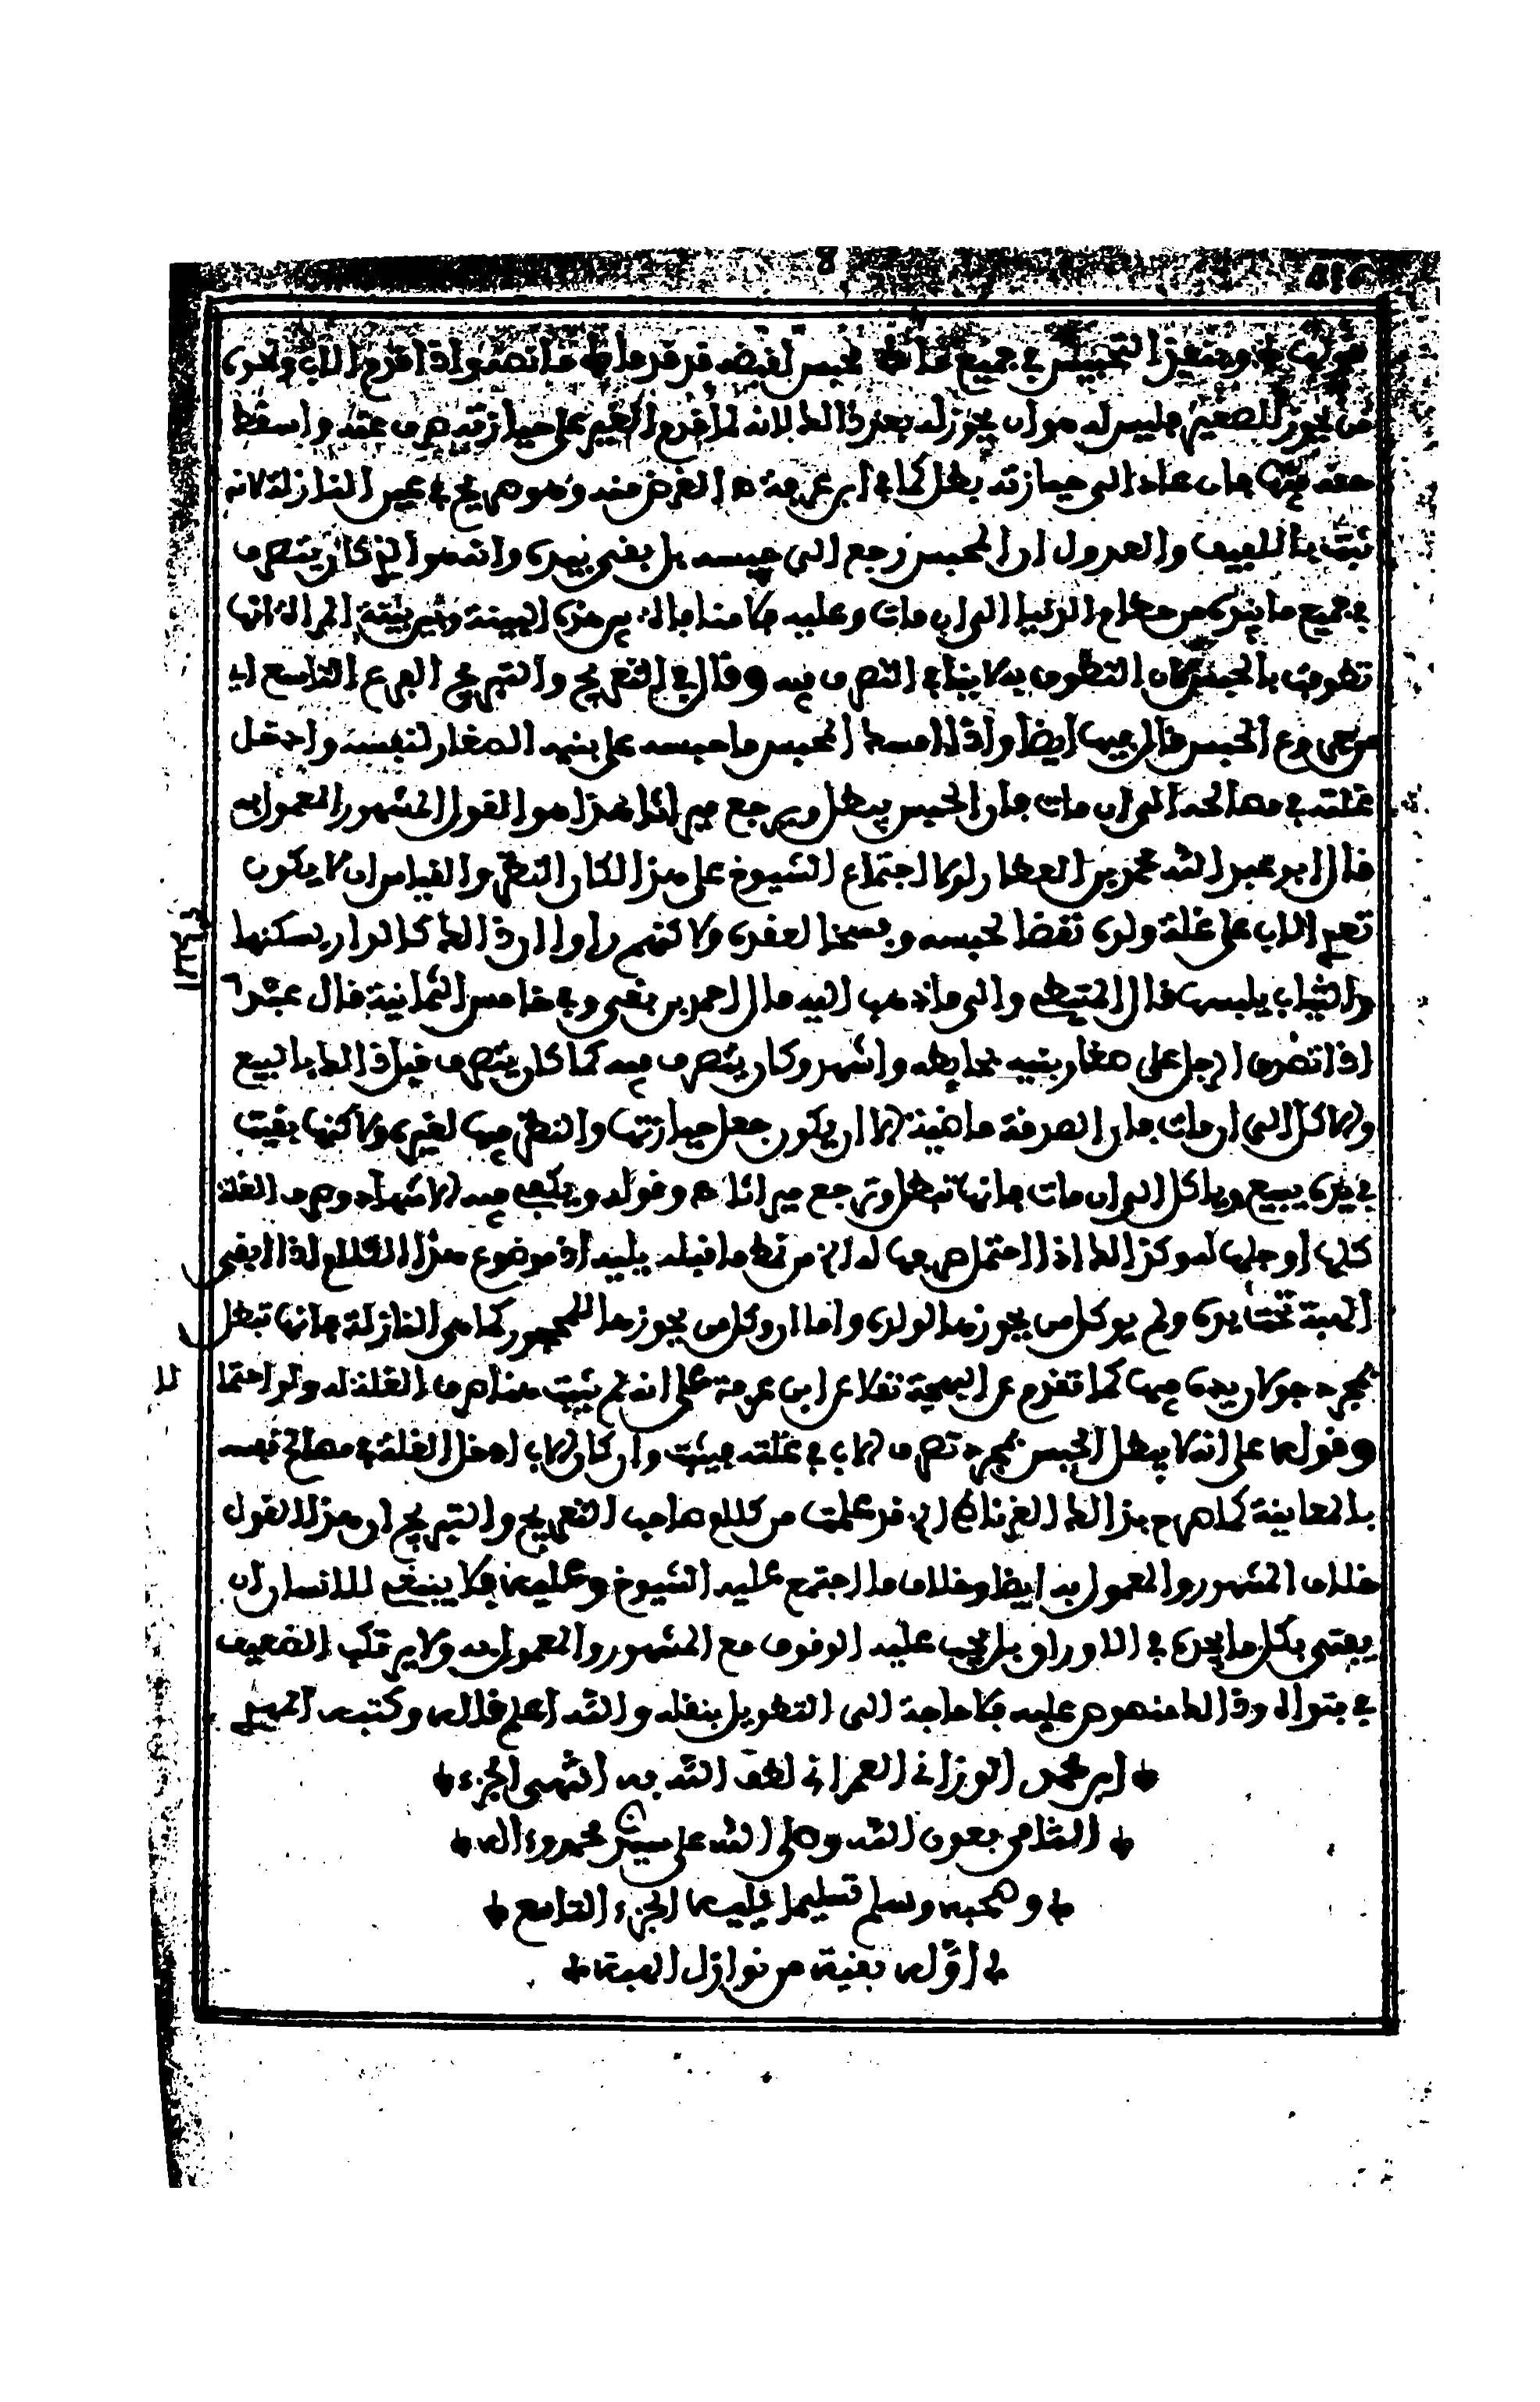 التحبيس في جميع لقبضه ما نصه واذا قدم الاب ونحوه
من يحوز للصغير فليس له هو ان يحوز له بعد ذالك لانه لما قدم الغير على حيازته صرف عنه واسقط
حقه منها فان عاد الى حيازته بطل كما في ابن عرفة ه الغرض منه وهو صريح في عين النازلة لانه
ثبت باللفيف والعدول ان المحبس رجع الى حبسه بل بقي بيده وانه هو الذي كان يتصرف
في جميع ما بيده من حطام الدنيا الى ان مات وعليه فلا منافاة بين هذه البينة وبين بينة المراة انها
تطوف بالحبس لان التطوف به لا ينافي التصرف فيه وقال في التفريج والتبريج الفرع التاسع اي
من فروع الحبس قال فيها ايضا واذا امسك المحبس ما حبسه على بنيه الصغار لنفسه وادخل
غلته في مصالحه الى ان مات فان الحبس يبطل ويرجع ميراثا هذا هو القول المشهور المعمول به
قال ابو عبد الله محمد بن العطار لولا اجتماع الشيوخ على هذا لكان النظر والقياس ان لا يكون
تعدي الاب على غلة ولده نقضا لحبسه وفسخا لعقده ولاكنهم راوا ان ذالك كالدار يسكنها
والثياب يلبسها قال المتيطي والى ما ذهب اليه مال احمد بن بقي وفي خامس الثمانية قال عبد
اذا تصدق الرجل على صغار بنيه بحايطه واشهد وكان يتصرف فيه كما كان يتصرف قبل ذالك بالبيع
والاكل الى ان مات فان الصدقة ماضية الا ان يكون جعل حيازتها والنظر فيها لغيره ولاكنها بقيت
في يده يبيع وياكل الى ان مات فانها تبطل وترجع ميراثا ه وقوله ويكفي فيه الاشهاد وصرف الغلة
كلها او جلها له وكذالك اذا احتمل صرفها له الخ مرتبط ما قبله يليه اذ موضوع هذا الكلام اذا ابقى
الهبة تحت يده ولم يوكل من يحوزها لولده واما ان وكل من يحوزها للمحجور كما هي النازلة فانها تبطل
بمجرد جولان يده فيها كما تقدم عن البهجة نقلا عن ابن عرفة على انه لم يثبت هنا صرف الغلة له ولو احتمالا
وقوله على انه لا يبطل الحبس بمجرد تصرف الاب في غلته حيث وان كان الاب ادخل الغلة في مصالح نفسه
بالمعاينة كما صرح بذالك الغرناطي الخ قد علمت من كلام صاحب التفريج والتبريج ان هذا القول
خلاف المشهور والمعمول به ايضا وخلاف ما اجتمع عليه الشيوخ وعليه فلا ينبغي للانسان ان
يفتي بكل ما يجده في الاوراق بل يجب عليه الوقوف مع المشهور والمعمول به ولا يرتكب الضعيف
في فتواه وذالك منصوص عليه فلا حاجة الى التطويل بنقله والله اعلم قاله وكتبه المهدي
ابن محمد الوزاني العمراني لطف الله به انتهى الجزء
الثامن بعون الله وصلى الله على سيدنا محمد وءاله
وصحبه وسلم تسليما يليه الجزء التاسع
اوله بقية من نوازل الهبة